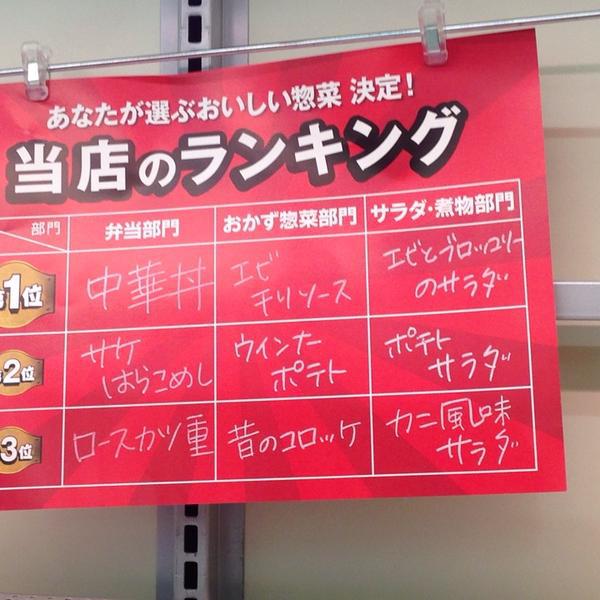 あなたが選ぶおいしい惣菜 決定!
当店のランキング
部門
弁当部門
おかず惣菜部門
サラダ・煮物部門
第1位
中華丼
エビ
チリソース
エビとブロッコリー
のサラダ
第2位
サケ
はらこめし
ウインナー
ポテト
ポテト
サラダ
3位
ロースカツ重
昔のコロッケ
カニ風味
サラダ